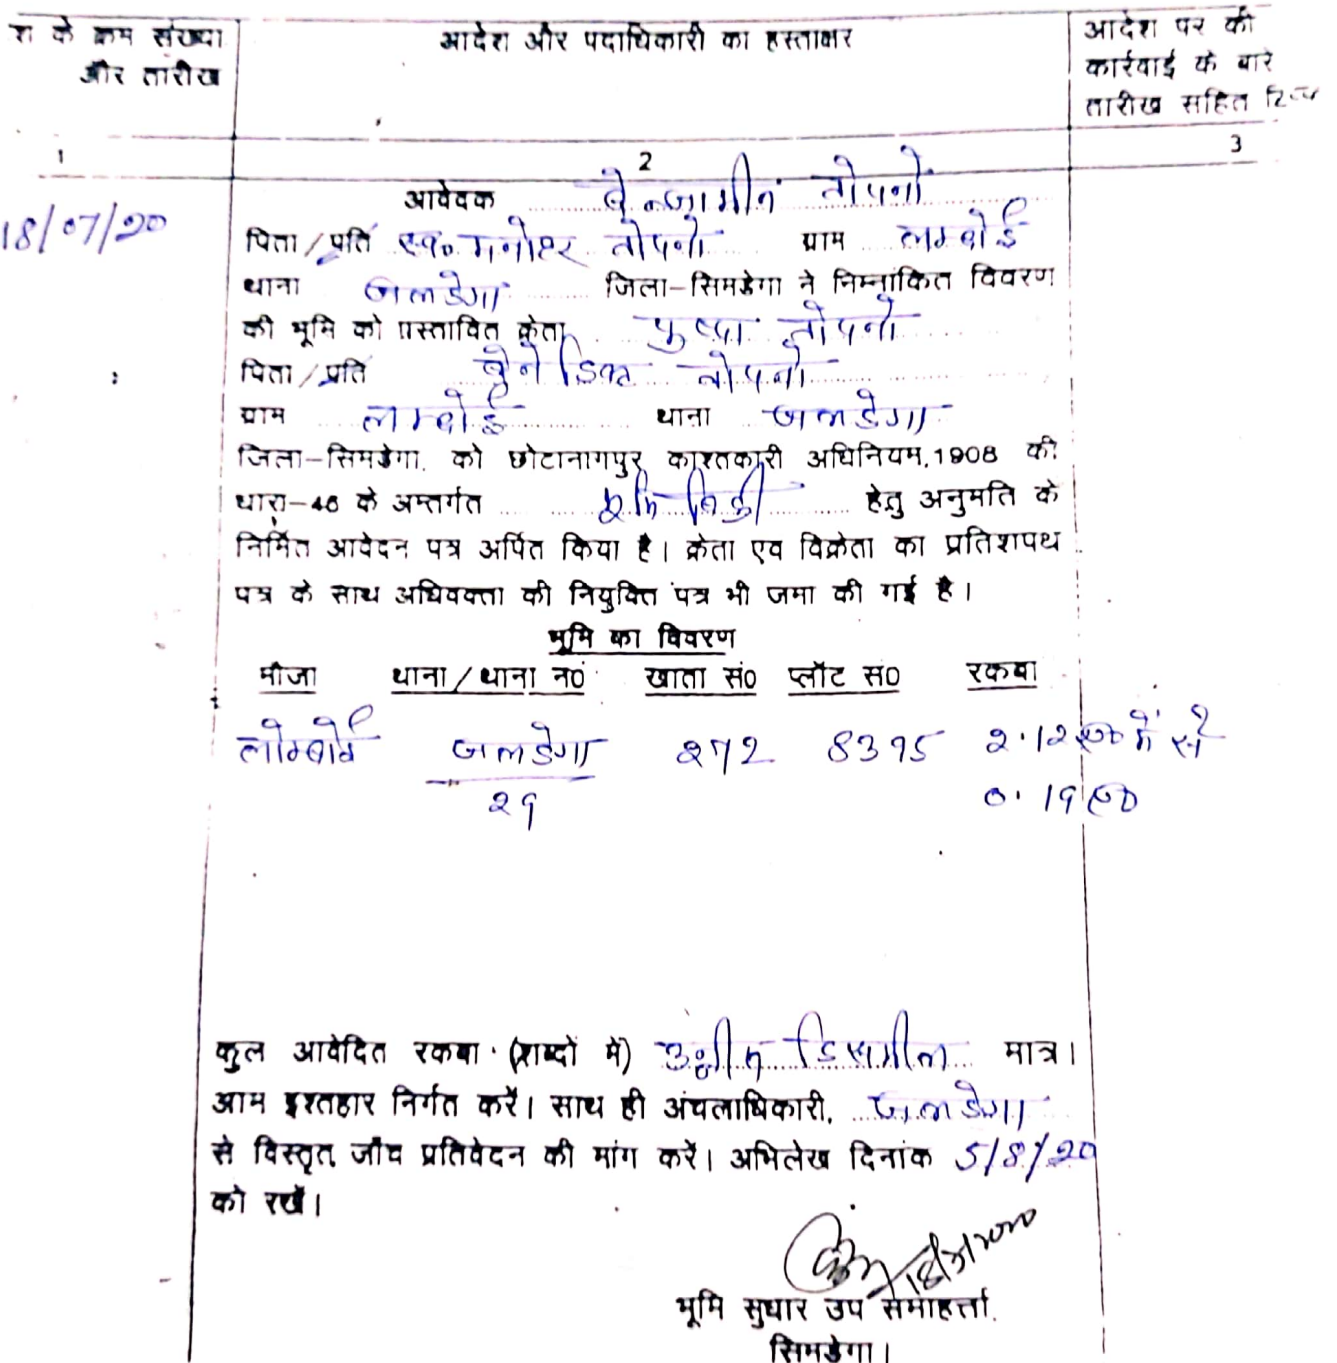 श के क्रम संख्या और तारीख
आदेश और पदाधिकारी का हस्ताक्षर
आदेश पर की कार्रवाई के बारे तारीख सहित
1
2
3
18/07/20
आवेदक बेन्जामीन तोपनो
पिता/प्रति स्व० मनोहर तोपनो ग्राम लम्बोई
थाना जलडेगा जिला-सिमडेगा ने निम्नांकित विवरण
की भूमि को प्रस्तावित क्रेता पुष्पा तोपनो
पिता/प्रति बेनेडिक्ट तोपनो
ग्राम लम्बोई थाना जलडेगा
जिला-सिमडेगा. को छोटानागपुर काश्तकारी अधिनियम, 1908 की
धारा-46 के अन्तर्गत भूमि बिक्री हेतु अनुमति के
निर्मित आवेदन पत्र अर्पित किया है। क्रेता एव विक्रेता का प्रतिशपथ
पत्र के साथ अधिवक्ता की नियुक्ति पत्र भी जमा की गई है।
भूमि का विवरण
मौजा थाना/थाना नं0 खाता सं0 प्लॉट सं0 रकबा
लोम्बोई जलडेगा 272 8395 2.12 ए० में से
29 0.19 ए०
कुल आवेदित रकबा (शब्दों में) उन्नीस डिसमील मात्र।
आम इश्तहार निर्गत करें। साथ ही अंचलाधिकारी, जलडेगा
से विस्तृत जाँच प्रतिवेदन की मांग करें। अभिलेख दिनांक 5/8/20
को रखें।
भूमि सुधार उप समाहर्त्ता.
सिमडेगा।